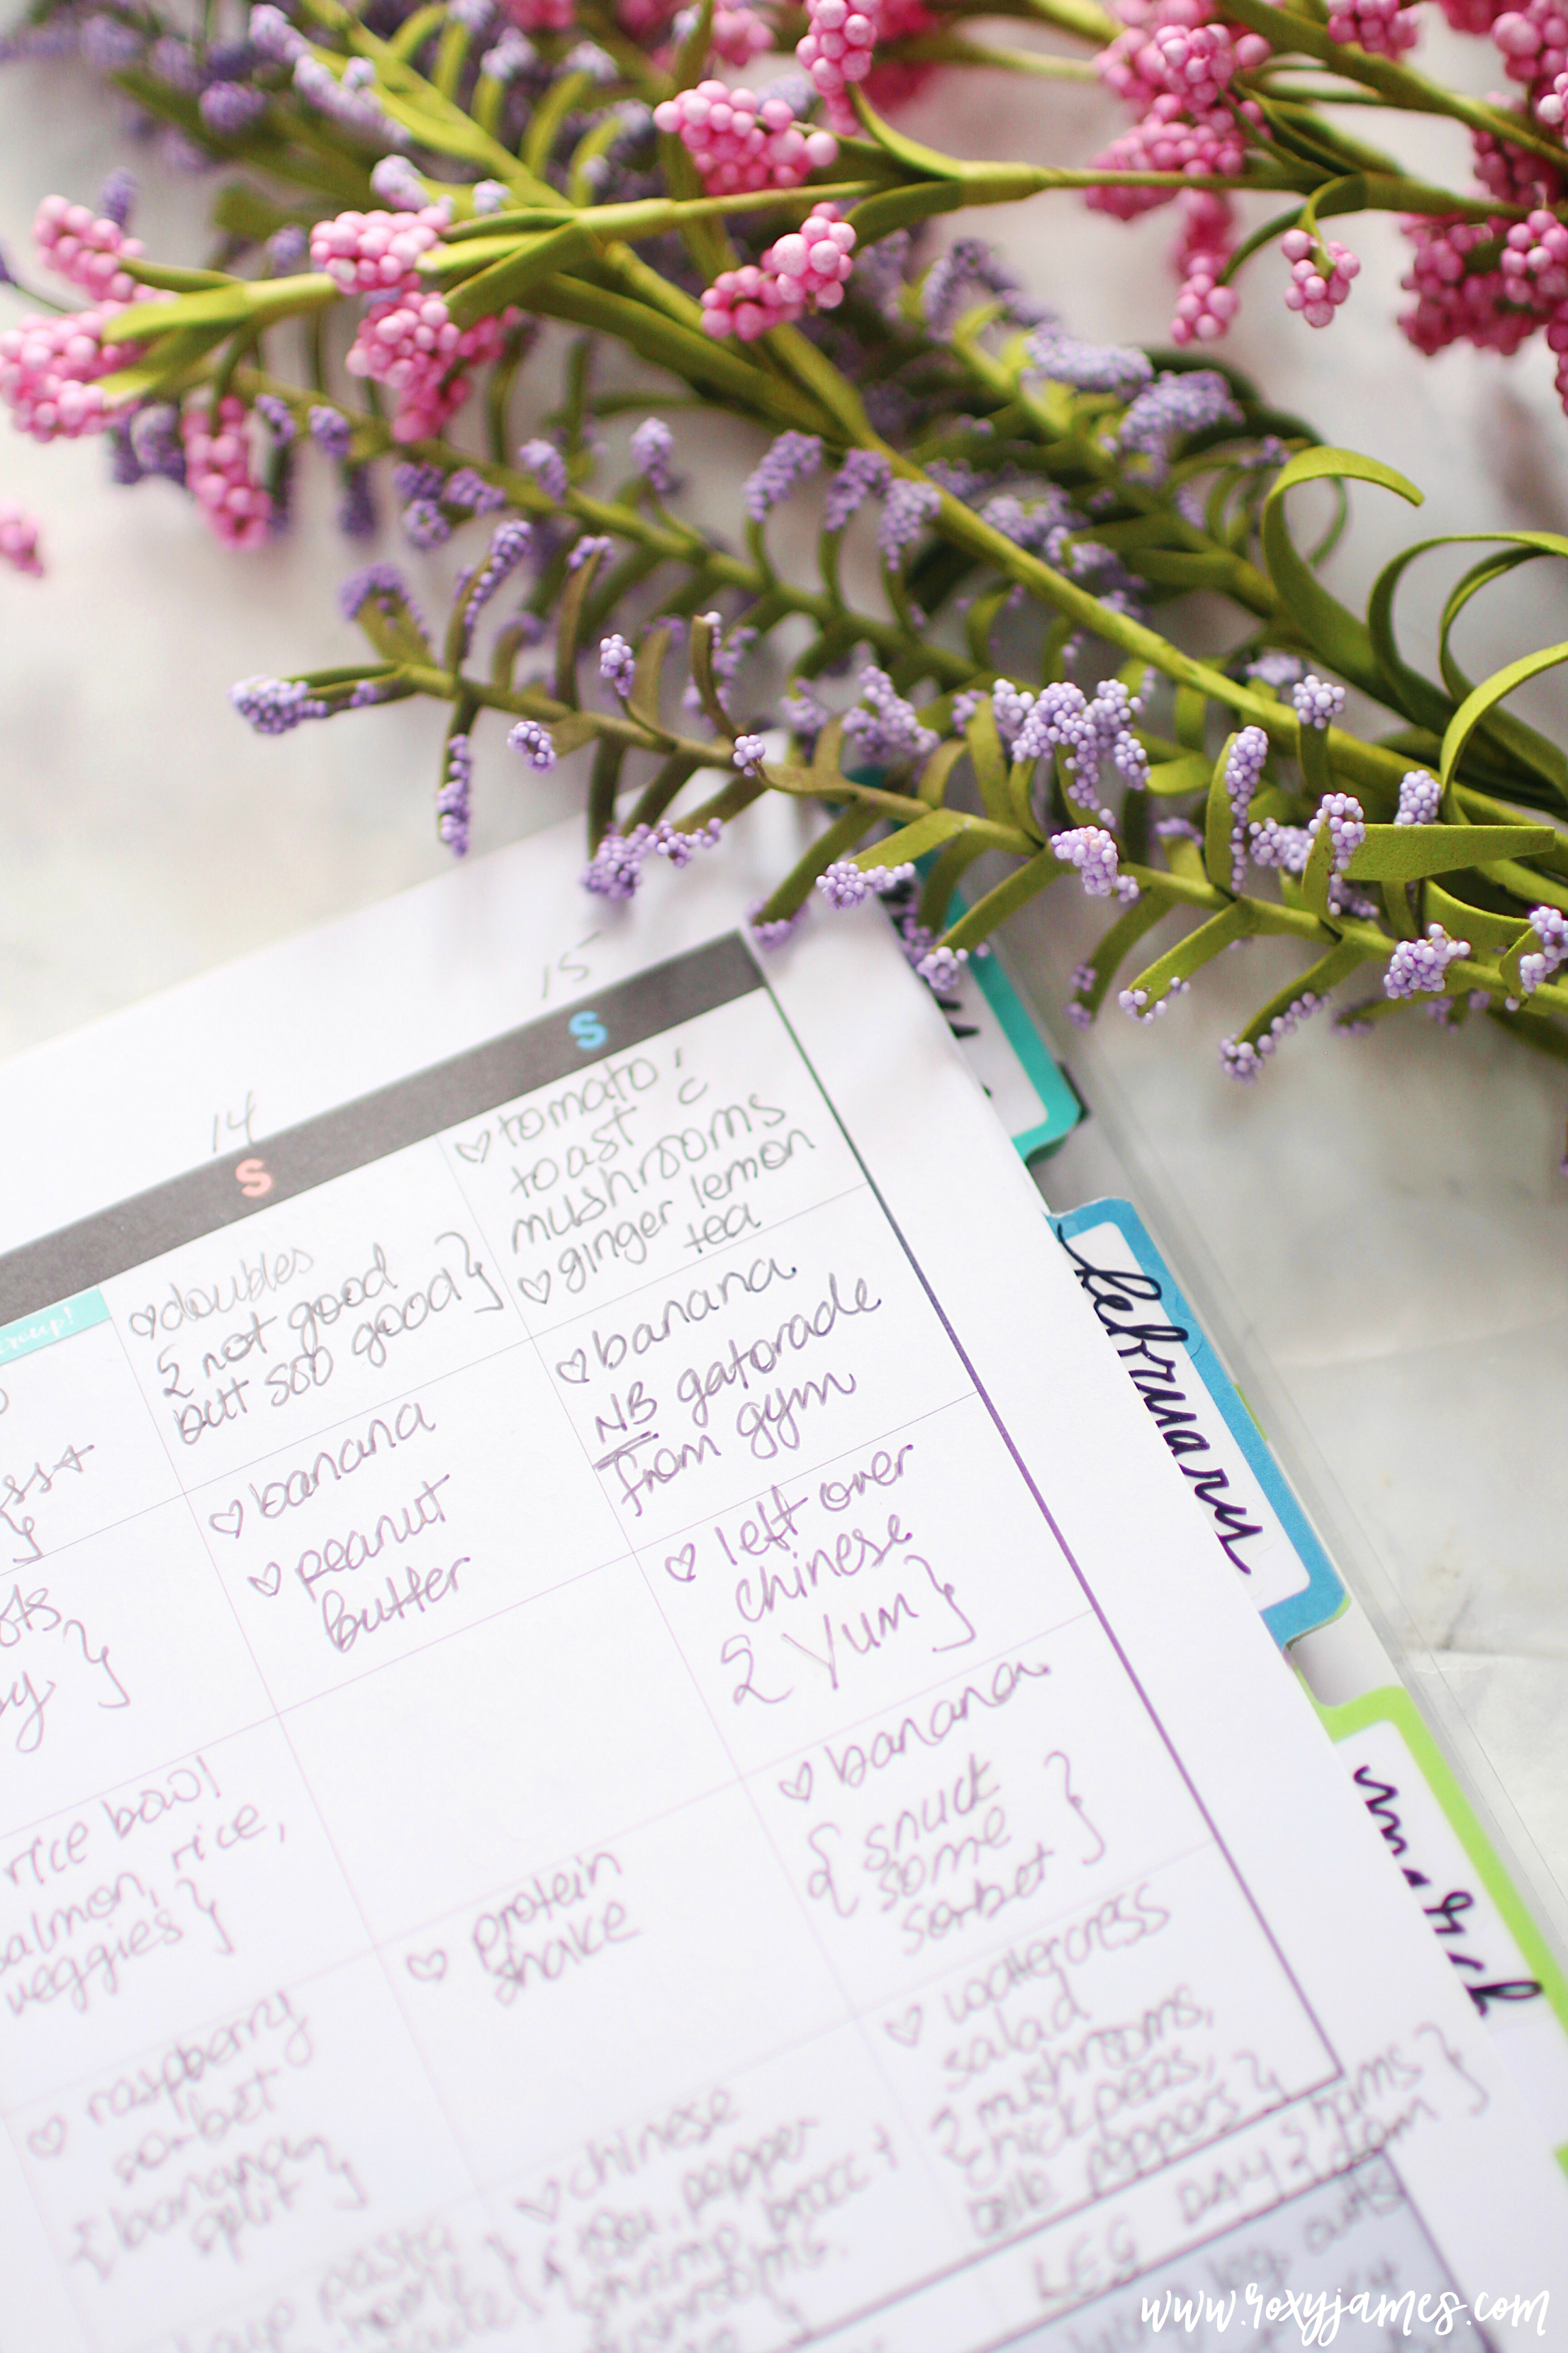 15
14
S
S
♡ tomato,
toast c
mushrooms
♡ ginger lemon
tea
♡ doubles
{ not good
but soo good }
♡ banana
NB gatorade
from gym
♡ banana
♡ peanut
butter
♡ left over
chinese
{ Yum }
rice bowl
salmon, rice,
veggies }
♡ banana
{ snuck
some
sorbet }
♡ protein
shake
♡ raspberry
sorbet
{ banana
split }
♡ watercress
salad
{ mushrooms,
chickpeas,
peppers }
♡ chinese
pepper
shrimp
pasta
LEG DAY
february
march
www.roxyjames.com